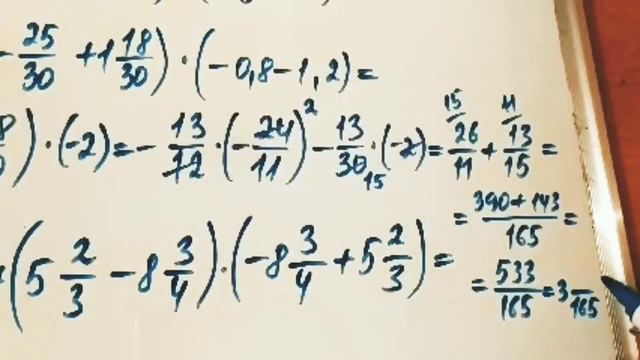 - 25/30 + 1 18/30) · (-0,8 - 1,2) =
) · (-2) = - 13/12 · (- 24/11)² - 13/30 15 · (-2) = 15 26/11 + 11 13/15 =
= 390 + 143/165 =
= (5 2/3 - 8 3/4) · (-8 3/4 + 5 2/3) =
= 533/165 = 3 /165